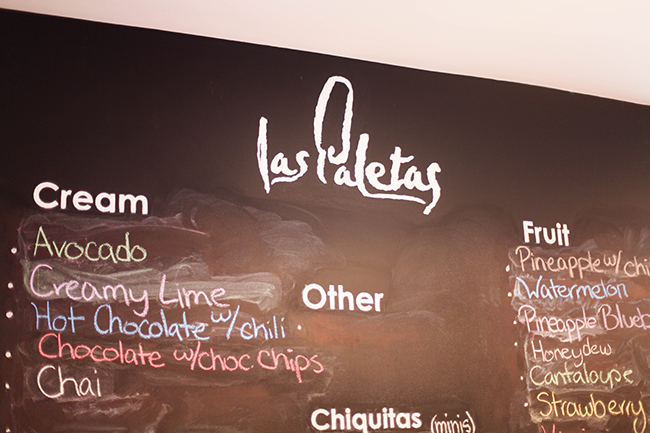 Las Paletas
Cream
Avocado
Creamy Lime
Hot Chocolate w/chili
Chocolate w/choc. chips
Chai
Other
Chiquitas (minis)
Fruit
Pineapple w/chi
Watermelon
Pineapple Blueb
Honeydew
Cantaloupe
Strawberry